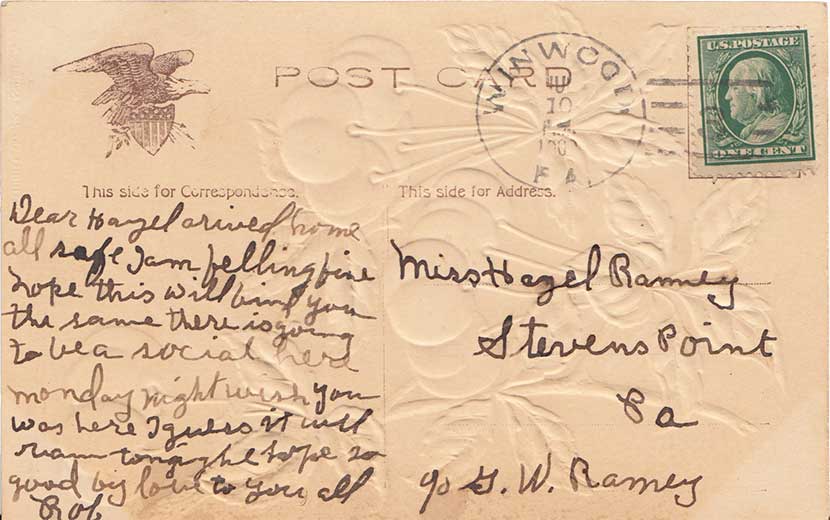 POST CARD
WINWOOD
10
PA
U.S. POSTAGE
ONE CENT
This side for Correspondence.
This side for Address.
Dear Hazel arived home
all safe I am felling fine
hope this will find you
the same there is going
to be a social here
monday night wish you
was here I guess it will
tonight hope so
good by love to you all
Rob
Miss Hazel Ramey
Stevens Point
Pa
c/o G. W. Ramey